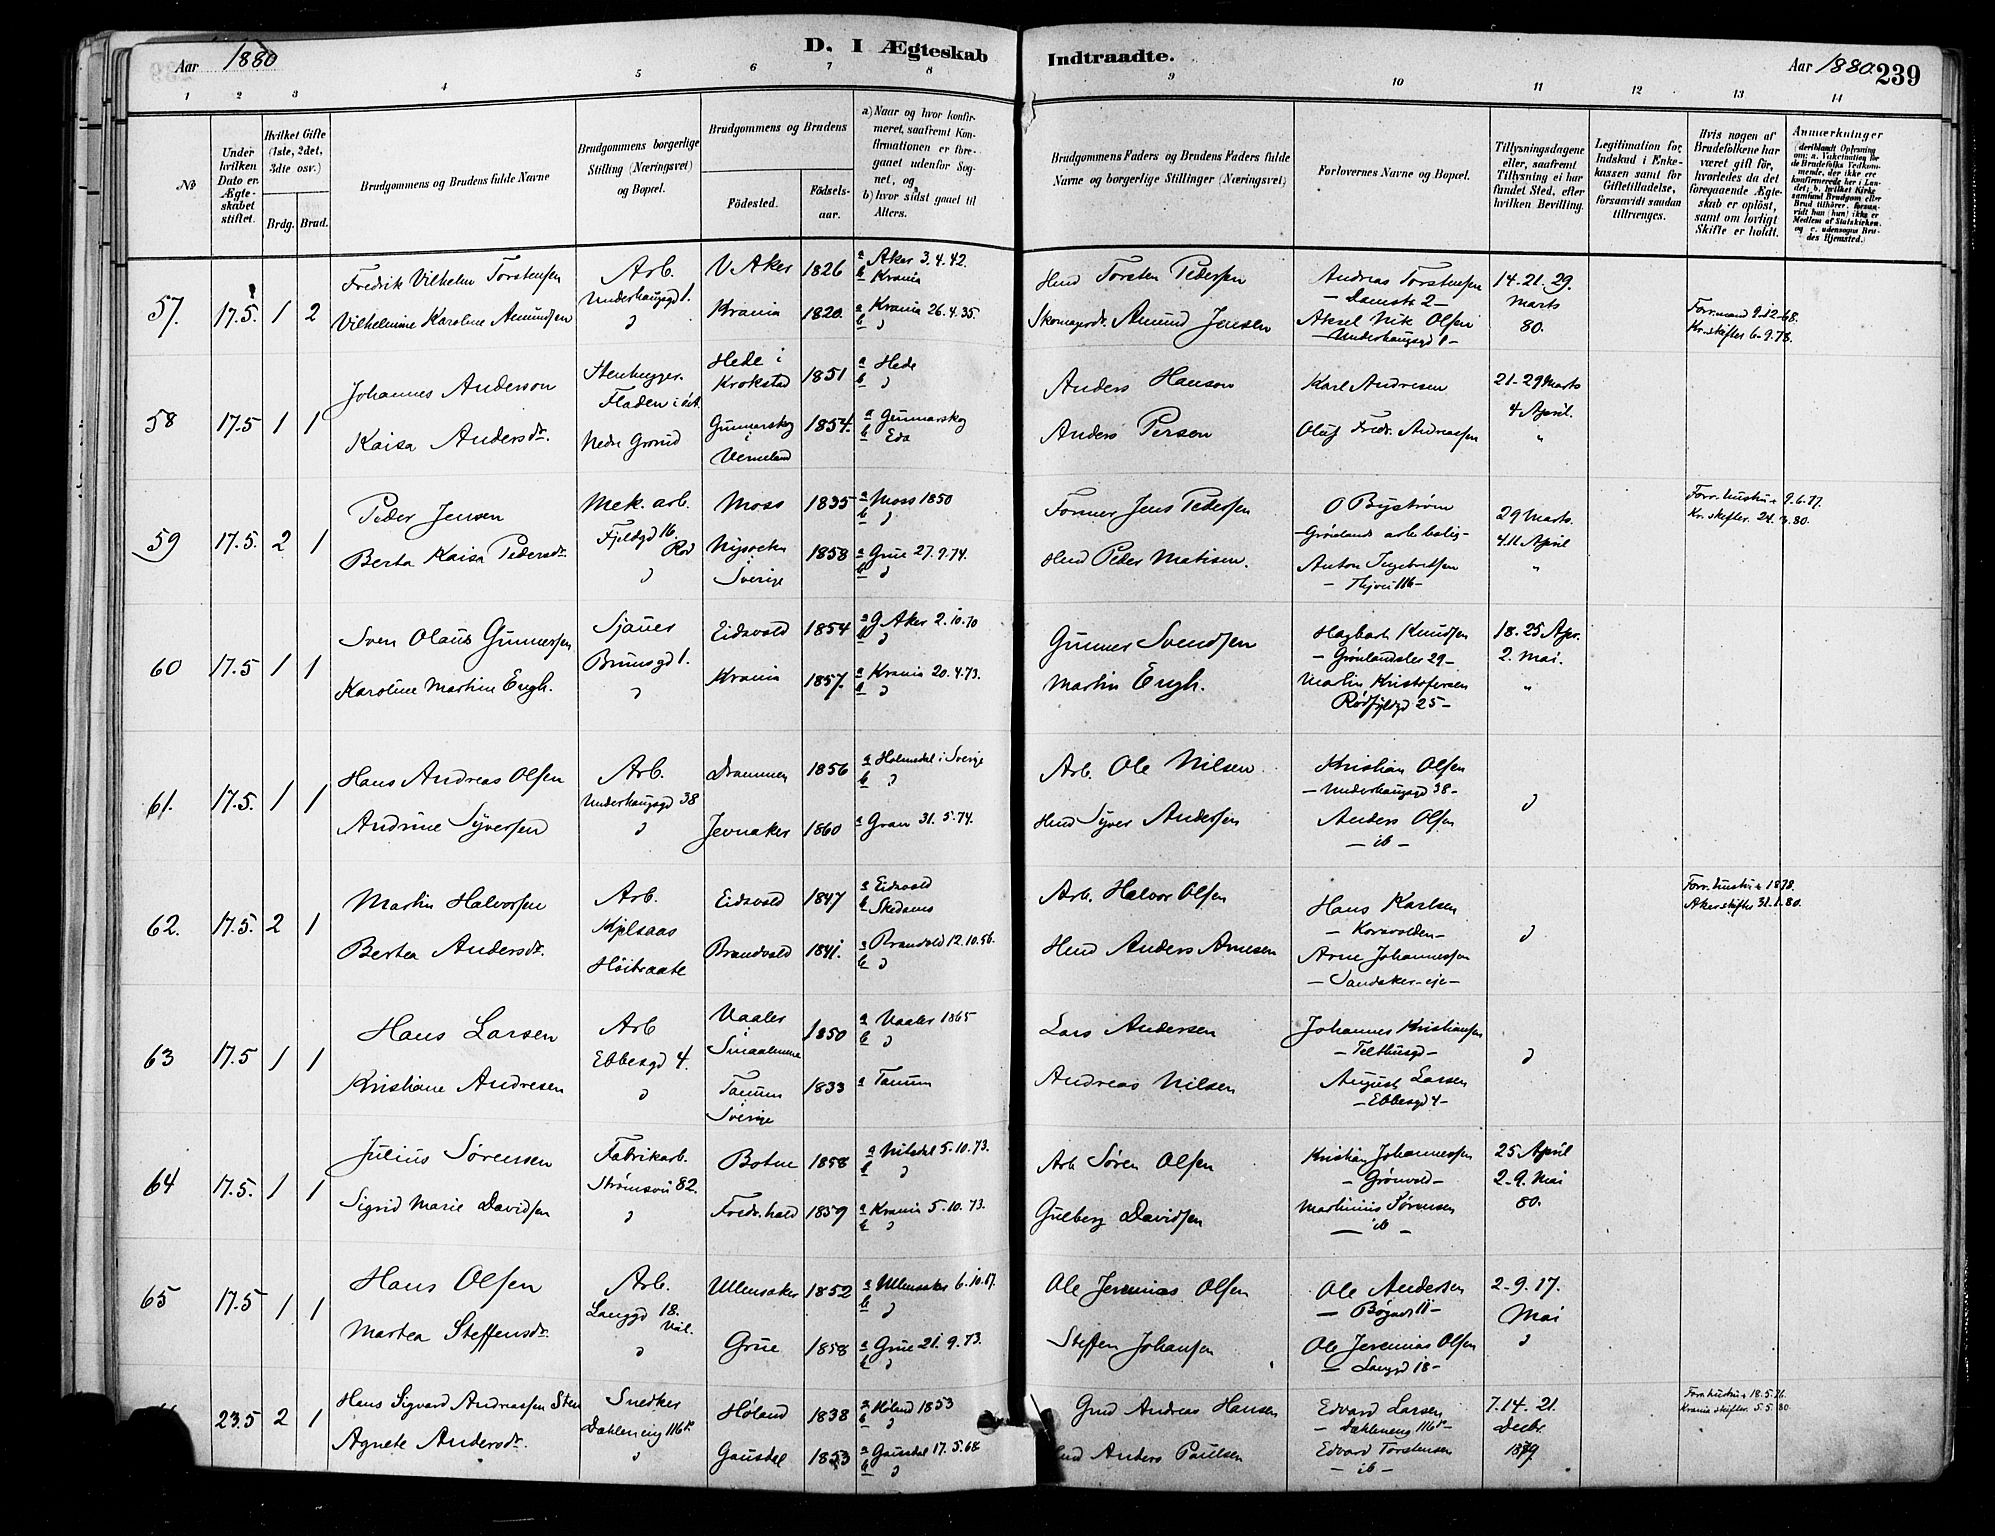 Aar 1880
D. I Ægteskab Indtraadte.
Aar 1880. 239
1 2 3 4 5 6 7 8 9 10 11 12 13 14
No
Under hvilken Dato er Ægteskabet stiftet.
Hvilket Gifte (1ste, 2det, 3dte osv.)
Brdg. Brud.
Brudgommens og Brudens fulde Navne
Brudgommens borgerlige Stilling (Næringsvei) og Bopæl.
Brudgommens og Brudens
Födested. Födselsaar.
a) Naar og hvor konfirmeret, saafremt Konfirmationen er foregaaet udenfor Sognet, og
b) hvor sidst gaaet til Alters.
Brudgommens Faders og Brudens Faders fulde Navne og borgerlige Stillinger (Næringsvei)
Forlovernes Navne og Bopæl.
Tillysningsdagene eller, saafremt Tillysning ei har fundet Sted, efter hvilken Bevilling.
Legitimation for Indskud i Enkekassen samt for Giftetilladelse, forsaavidt saadan tiltrænges.
Hvis nogen af Brudefolkene har været gift för, hvorledes da det foregaaende Ægteskab er oplöst, samt om lovligt Skifte er holdt.
Anmærkninger
57. 17.5. 1 2
Fredrik Vilhelm Torstensen Arb. V Aker 1826 a Aker 3.4.42. b Krania
Underhaugsgd 1.
Vilhelmine Karoline Amundsen Krania 1820. a Krania 26.4.35.
Hmd Torsten Pedersen Andreas Torstensen 14.21.29. Marts 80.
— Damstr 2 —
Skomagersv. Amund Jensen Aksel Nik Olsen
— Underhaugsgd 1 —
Forr. mand 9-12-68.
Kr. skifter 6-9.78.
58 17.5 1 1
Johannes Anderson Stenhugger Hede i Krokstad 1851 a Hede
Kaisa Andersdr. Nedr Grønd Gunnarskog i Vermeland 1854. a Gunnarskog b Eda
Anders Hanson Karl Andresen 21-29 Marts 4 April.
Anders Person Oluf Fredr. Andreasen
59 17.5. 2 1
Peder Jensen Mek. arb. Moss 1835 a Moss 1850
Fjeldgd 16
Berta Kaisa Pedersdr. Sverige 1858 a Grue 27.9.74.
Former Jens Pedersen O Bystrøm 29 Marts 4.11 April
— Grønlands arb. bolig —
Hmd Peder Matisen. Anton Ingebretsen
— Thjvei 116 —
Forr. hustru + 9.6.77.
Kr. skifter.
60 17.5 1 1
Sven Olaus Gunnersen Sjauer Eidsvold 1854 a G Aker 2.10.70
Brunsgd 1.
Karoline Martine Engh. Krania 1857. a Krania 20.4.73.
Gunner Svendsen Hagbart Knudsen 18.25 Apr. 2. Mai.
— Grønlandsler 29 —
Martin Engh. Martin Kristofersen
Rødfyldgd 25 —
61. 17.5. 1 1
Hans Andreas Olsen Arb. Drammen 1856 a Holmedal i Sverige
Underhaugsgd 38
Andrine Syversen Jevnaker 1860 a Gran 31.5.74.
Arb. Ole Nilsen Kristian Olsen
— Underhaugsgd 38 —
Hmd Syver Andersen Anders Olsen
— ib —
62. 17.5. 2 1
Martin Halvorsen Arb. Eidsvold 1847 a Eidsvold b Skedsmo
Kjelsaas
Bertea Andersdr. Høibraate Brandvold 1841. a Brandvold 12.10.56.
Arb. Halvor Olsen Hans Karlsen
— Korsvolden —
Hmd Anders Arnesen Arne Johannessen
— Sandaker-eje —
Forr. hustru + 1878.
Aker skifter 31.1.80.
63 17.5 1 1
Hans Larsen Arb Vaaler i Smaalenene 1850 a Vaaler 1865
Ebbesgd 4.
Kristiane Andresen Tanum i Sverige 1833 a Tanum
Lars Andersen Johannes Kristiansen
— Telthusgd —
Andreas Nilsen August Larsen
— Ebbesgd 4 —
64 17.5. 1 1
Julius Sørensen Fabrikarb. Botne 1858 a Nitedal 5.10.73.
Strømsvei 82.
Sigrid Marie Davidsen Fredr.hald 1859 a Krania 5.10.73.
Arb Søren Olsen Kristian Johannessen 25 April 2-9. Mai 80.
— Grønvold —
Gulberg Davidsen Martinius Sørensen
— ib —
65 17.5 1 1
Hans Olsen Arb. Ullensaker 1852 a Ullensaker 6.10.67.
Langgd 18. Vål.
Martea Steffensdr. Grue 1858 a Grue 21.9.73.
Ole Jeremias Olsen Ole Andersen 2-9.17. Mai
Steffen Johansen Ole Jeremias Olsen
— Langgd 18 —
23.5 2 1
Hans Sigvard Andreassen Sten Snedker Høland 1838 a Høland 1853
Dæhleneng 116b
Agnete Andersdr. Gausdal 1853 a Gausdal 17.5.68
Gmd Andreas Hansen Edvard Larsen 7.14.21. Decbr. 1879.
— Dæhleneng 116b —
Hmd Anders Paulsen Edvard Torstensen
— ib —
Forr. hustru + 18.5.76.
Krania skifter. 5.5.80.